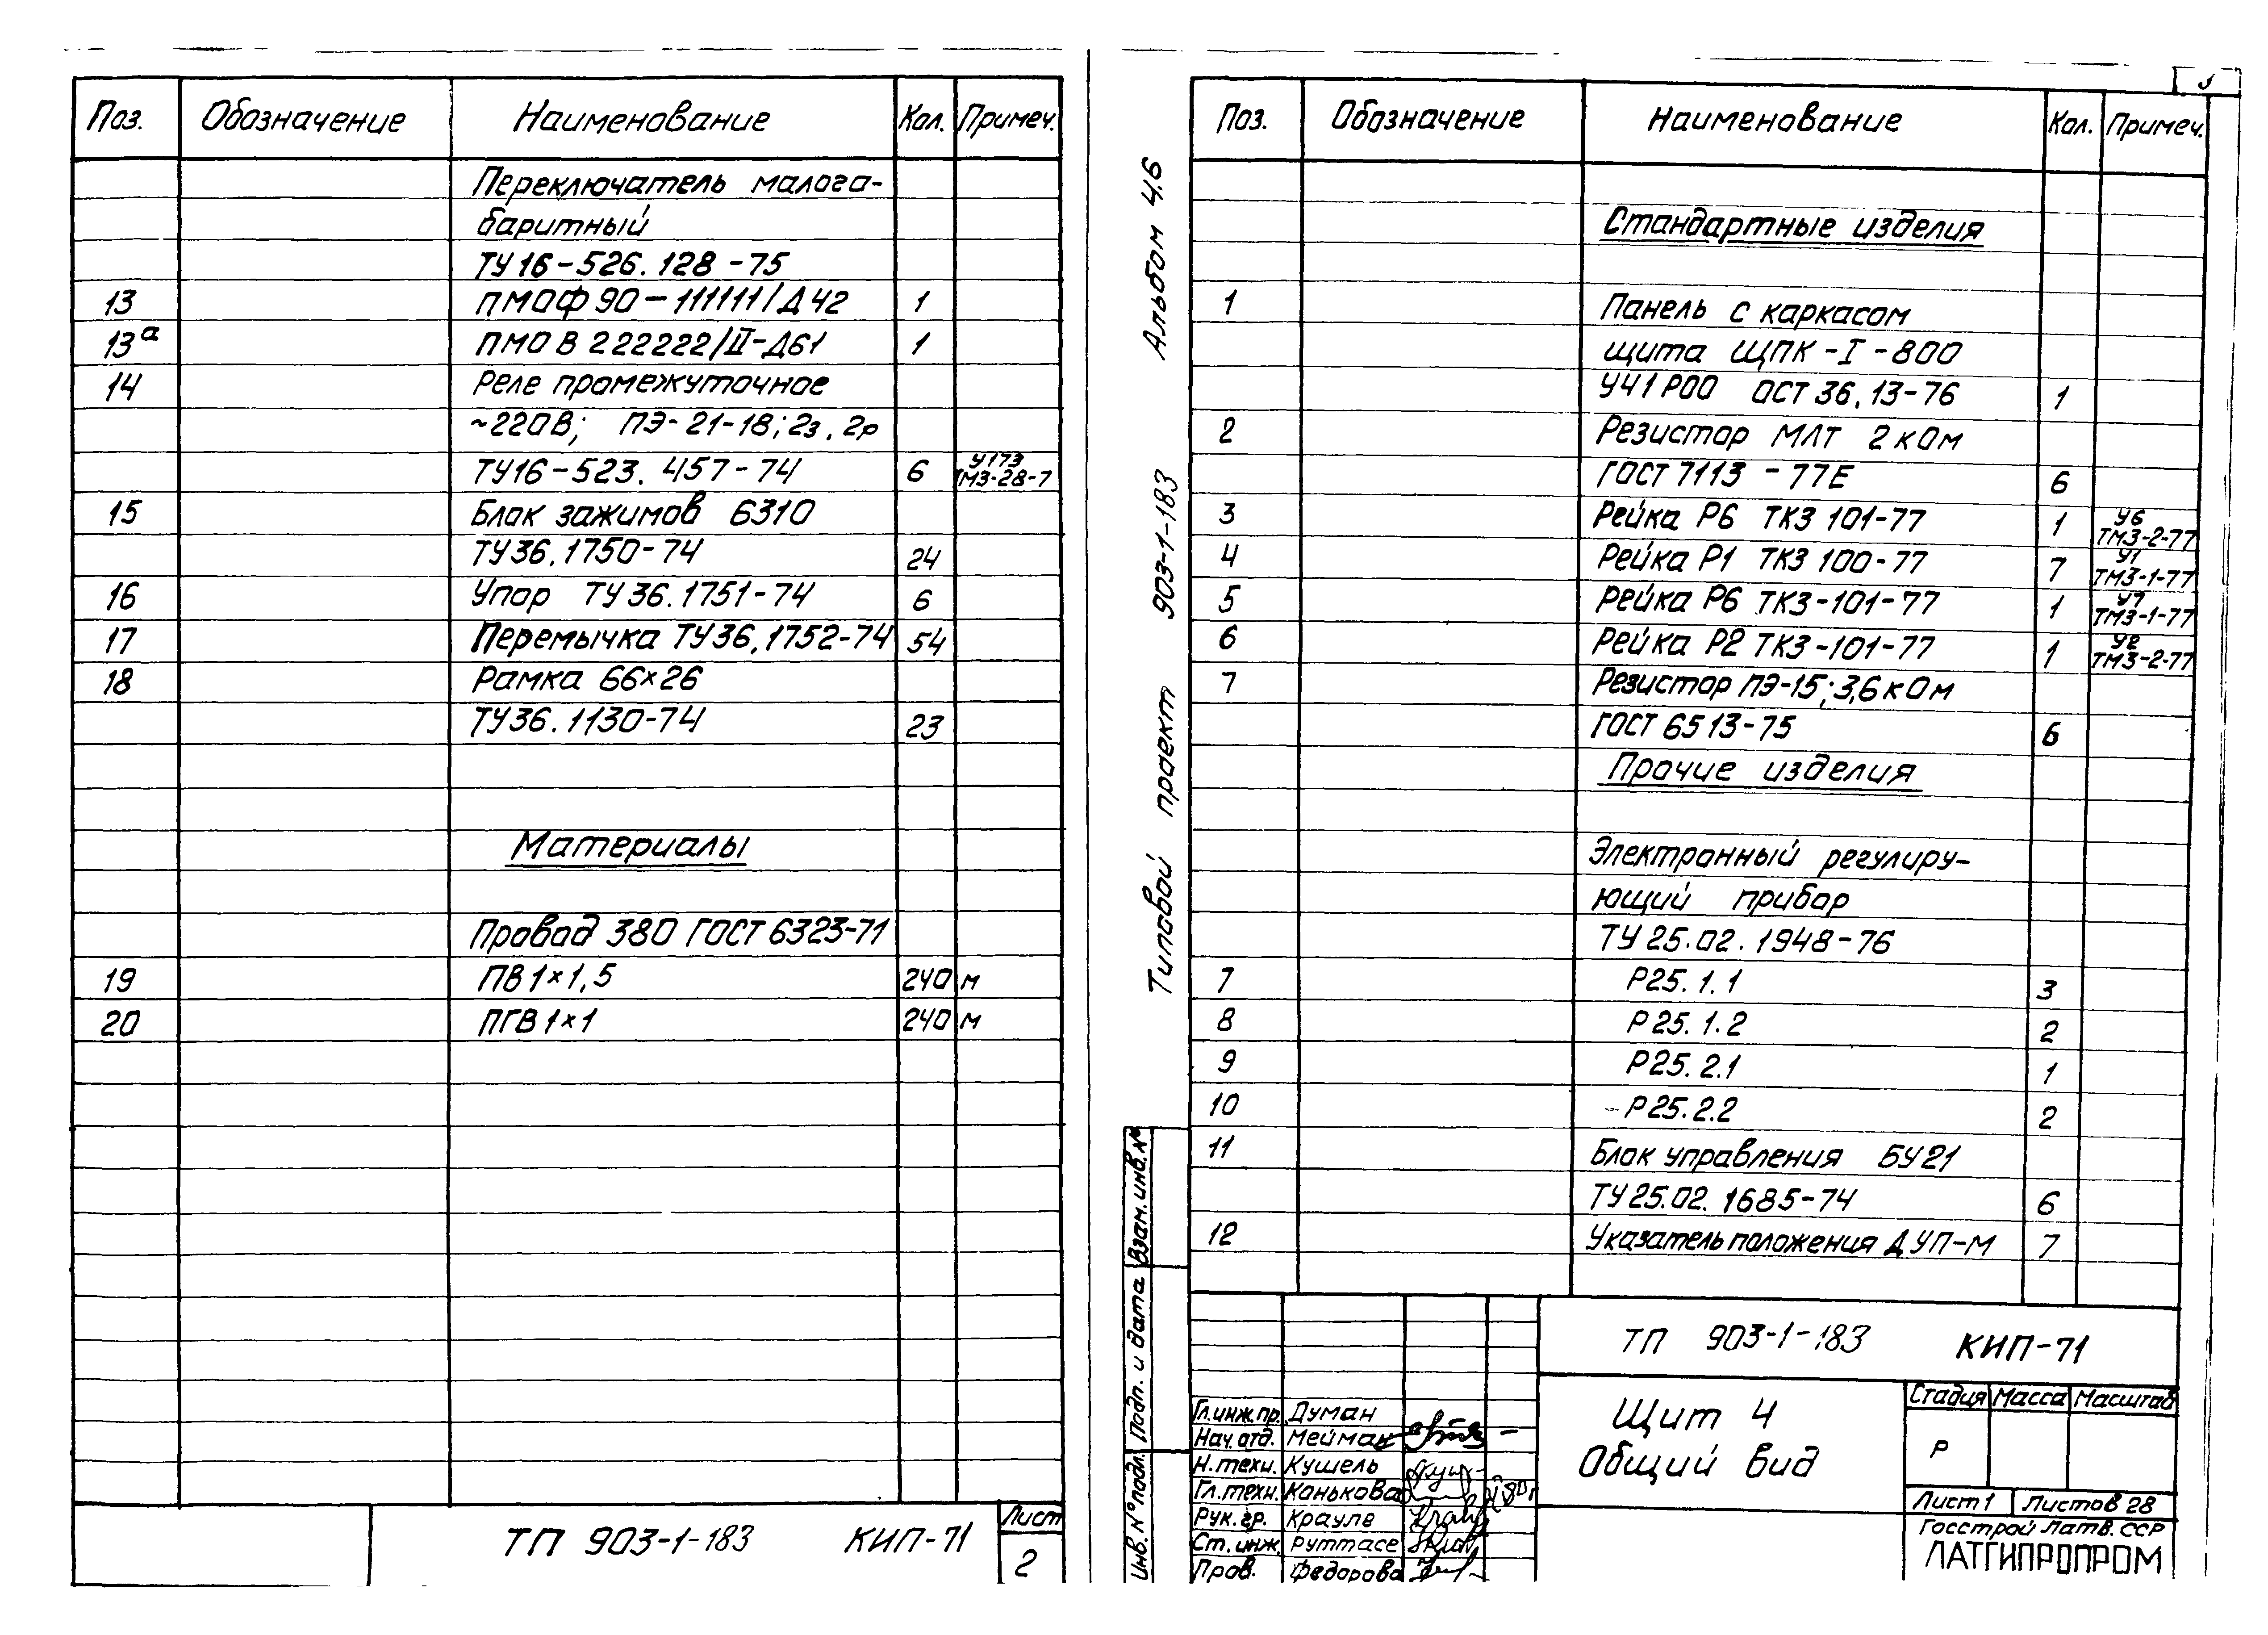 Поз. Обозначение Наименование Кол. Примеч.
Переключатель малога-
баритный
ТУ 16-526.128-75
13 ПМОФ 90-111111/Д42 1
13а ПМОВ 222222/II-Д61 1
14 Реле промежуточное
~220В; ПЭ-21-18; 2з, 2р
ТУ16-523.457-74 6 У173 ТМ3-28-7
15 Блок зажимов 6310
ТУ36.1750-74 24
16 Упор ТУ 36.1751-74 6
17 Перемычка ТУ36.1752-74 54
18 Рамка 66×26
ТУ36.1130-74 23
Материалы
Провод 380 ГОСТ 6323-71
19 ПВ 1×1,5 240 м
20 ПГВ 1×1 240 м
ТП 903-1-183 КИП-71
Лист
2
Альбом 4.6
Типовой проект 903-1-183
Поз. Обозначение Наименование Кол. Примеч.
Стандартные изделия
1 Панель с каркасом
щита ЩПК-I-800
У41Р00 ОСТ 36.13-76 1
2 Резистор МЛТ 2кОм
ГОСТ 7113-77Е 6
3 Рейка Р6 ТК3 101-77 1 У6 ТМ3-2-77
4 Рейка Р1 ТК3 100-77 7 У1 ТМ3-1-77
5 Рейка Р6 ТК3-101-77 1 У7 ТМ3-1-77
6 Рейка Р2 ТК3-101-77 1 У2 ТМ3-2-77
7 Резистор ПЭ-15; 3,6кОм
ГОСТ 6513-75 6
Прочие изделия
Электронный регулиру-
ющий прибор
ТУ 25.02.1948-76
7 Р25.1.1 3
8 Р25.1.2 2
9 Р25.2.1 1
10 Р25.2.2 2
11 Блок управления БУ21
ТУ25.02.1685-74 6
12 Указатель положения ДУП-М 7
Взам. инв. №
Подп. и дата
Инв. № подл.
ТП 903-1-183 КИП-71
Гл. инж. пр. Думан
Нач. отд. Мейман
Н. техн. Кушель
Гл. техн. Конькова
Рук. гр. Крауле
Ст. инж. Руттасе
Пров. Федорова
Щит 4
Общий вид
Стадия Масса Масштаб
Р
Лист 1 Листов 28
Госстрой Латв. ССР
ЛАТГИПРОПРОМ